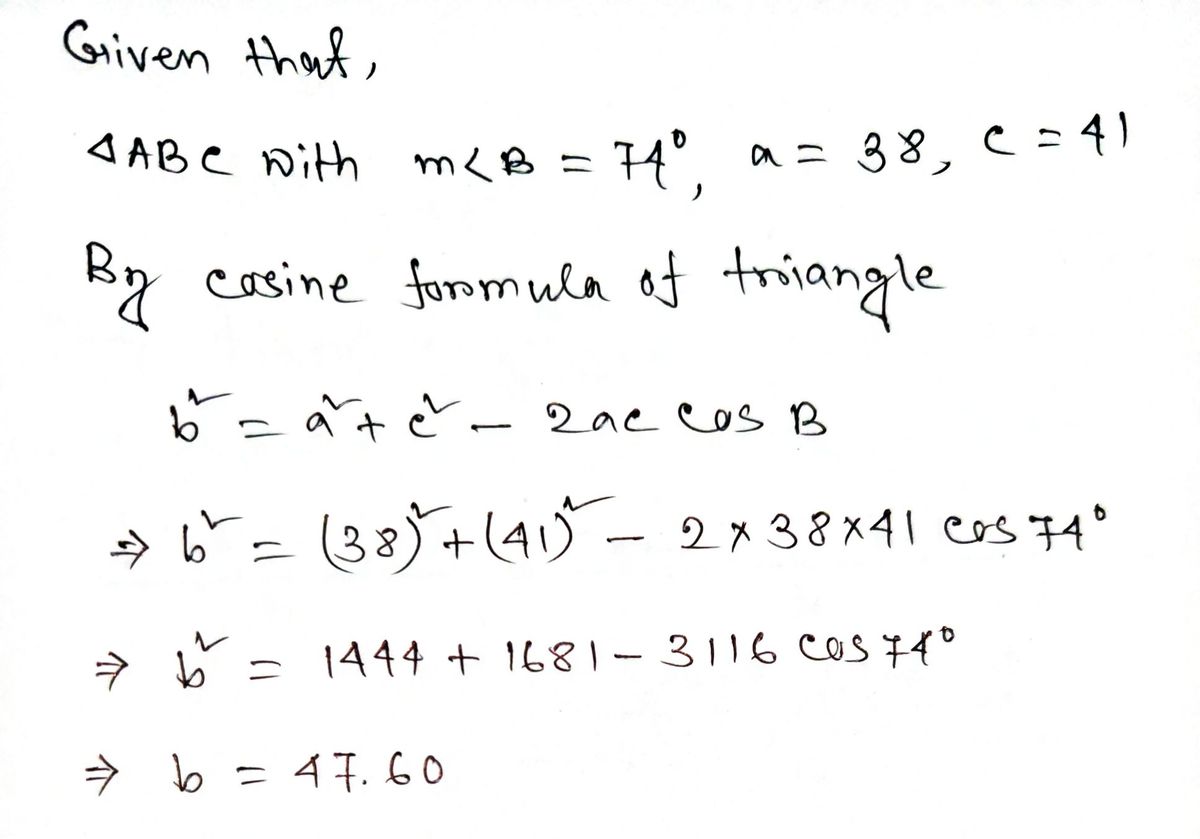 Given that,
△ABC with m<B = 74°, a = 38, c = 41
By cosine formula of triangle
b² = a² + c² - 2ac cos B
⇒ b² = (38)² + (41)² - 2 × 38 × 41 cos 74°
⇒ b² = 1444 + 1681 - 3116 cos 74°
⇒ b = 47.60